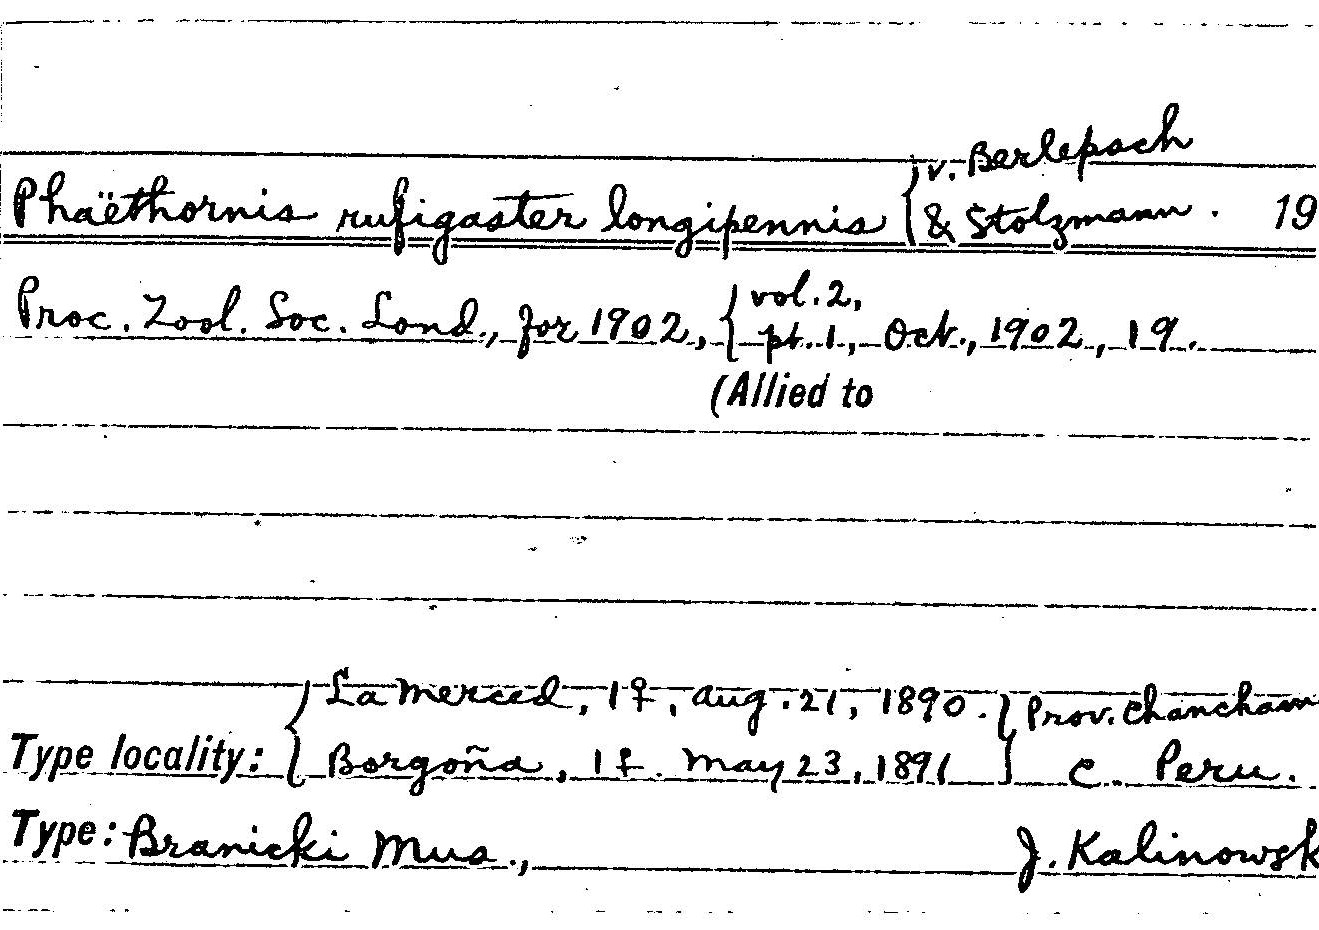 v. Berlepsch
Phaëthornis rufigaster longipennis { & Stolzmann. 19
vol. 2,
Proc. Zool. Soc. Lond., for 1902, { pt. 1, Oct., 1902, 19.
(Allied to
La Merced, 1♀, Aug. 21, 1890. } Prov. Chancham
Type locality: { Borgoña, 1♀. May 23, 1891 C. Peru.
Type: Branicki Mus., J. Kalinowsk